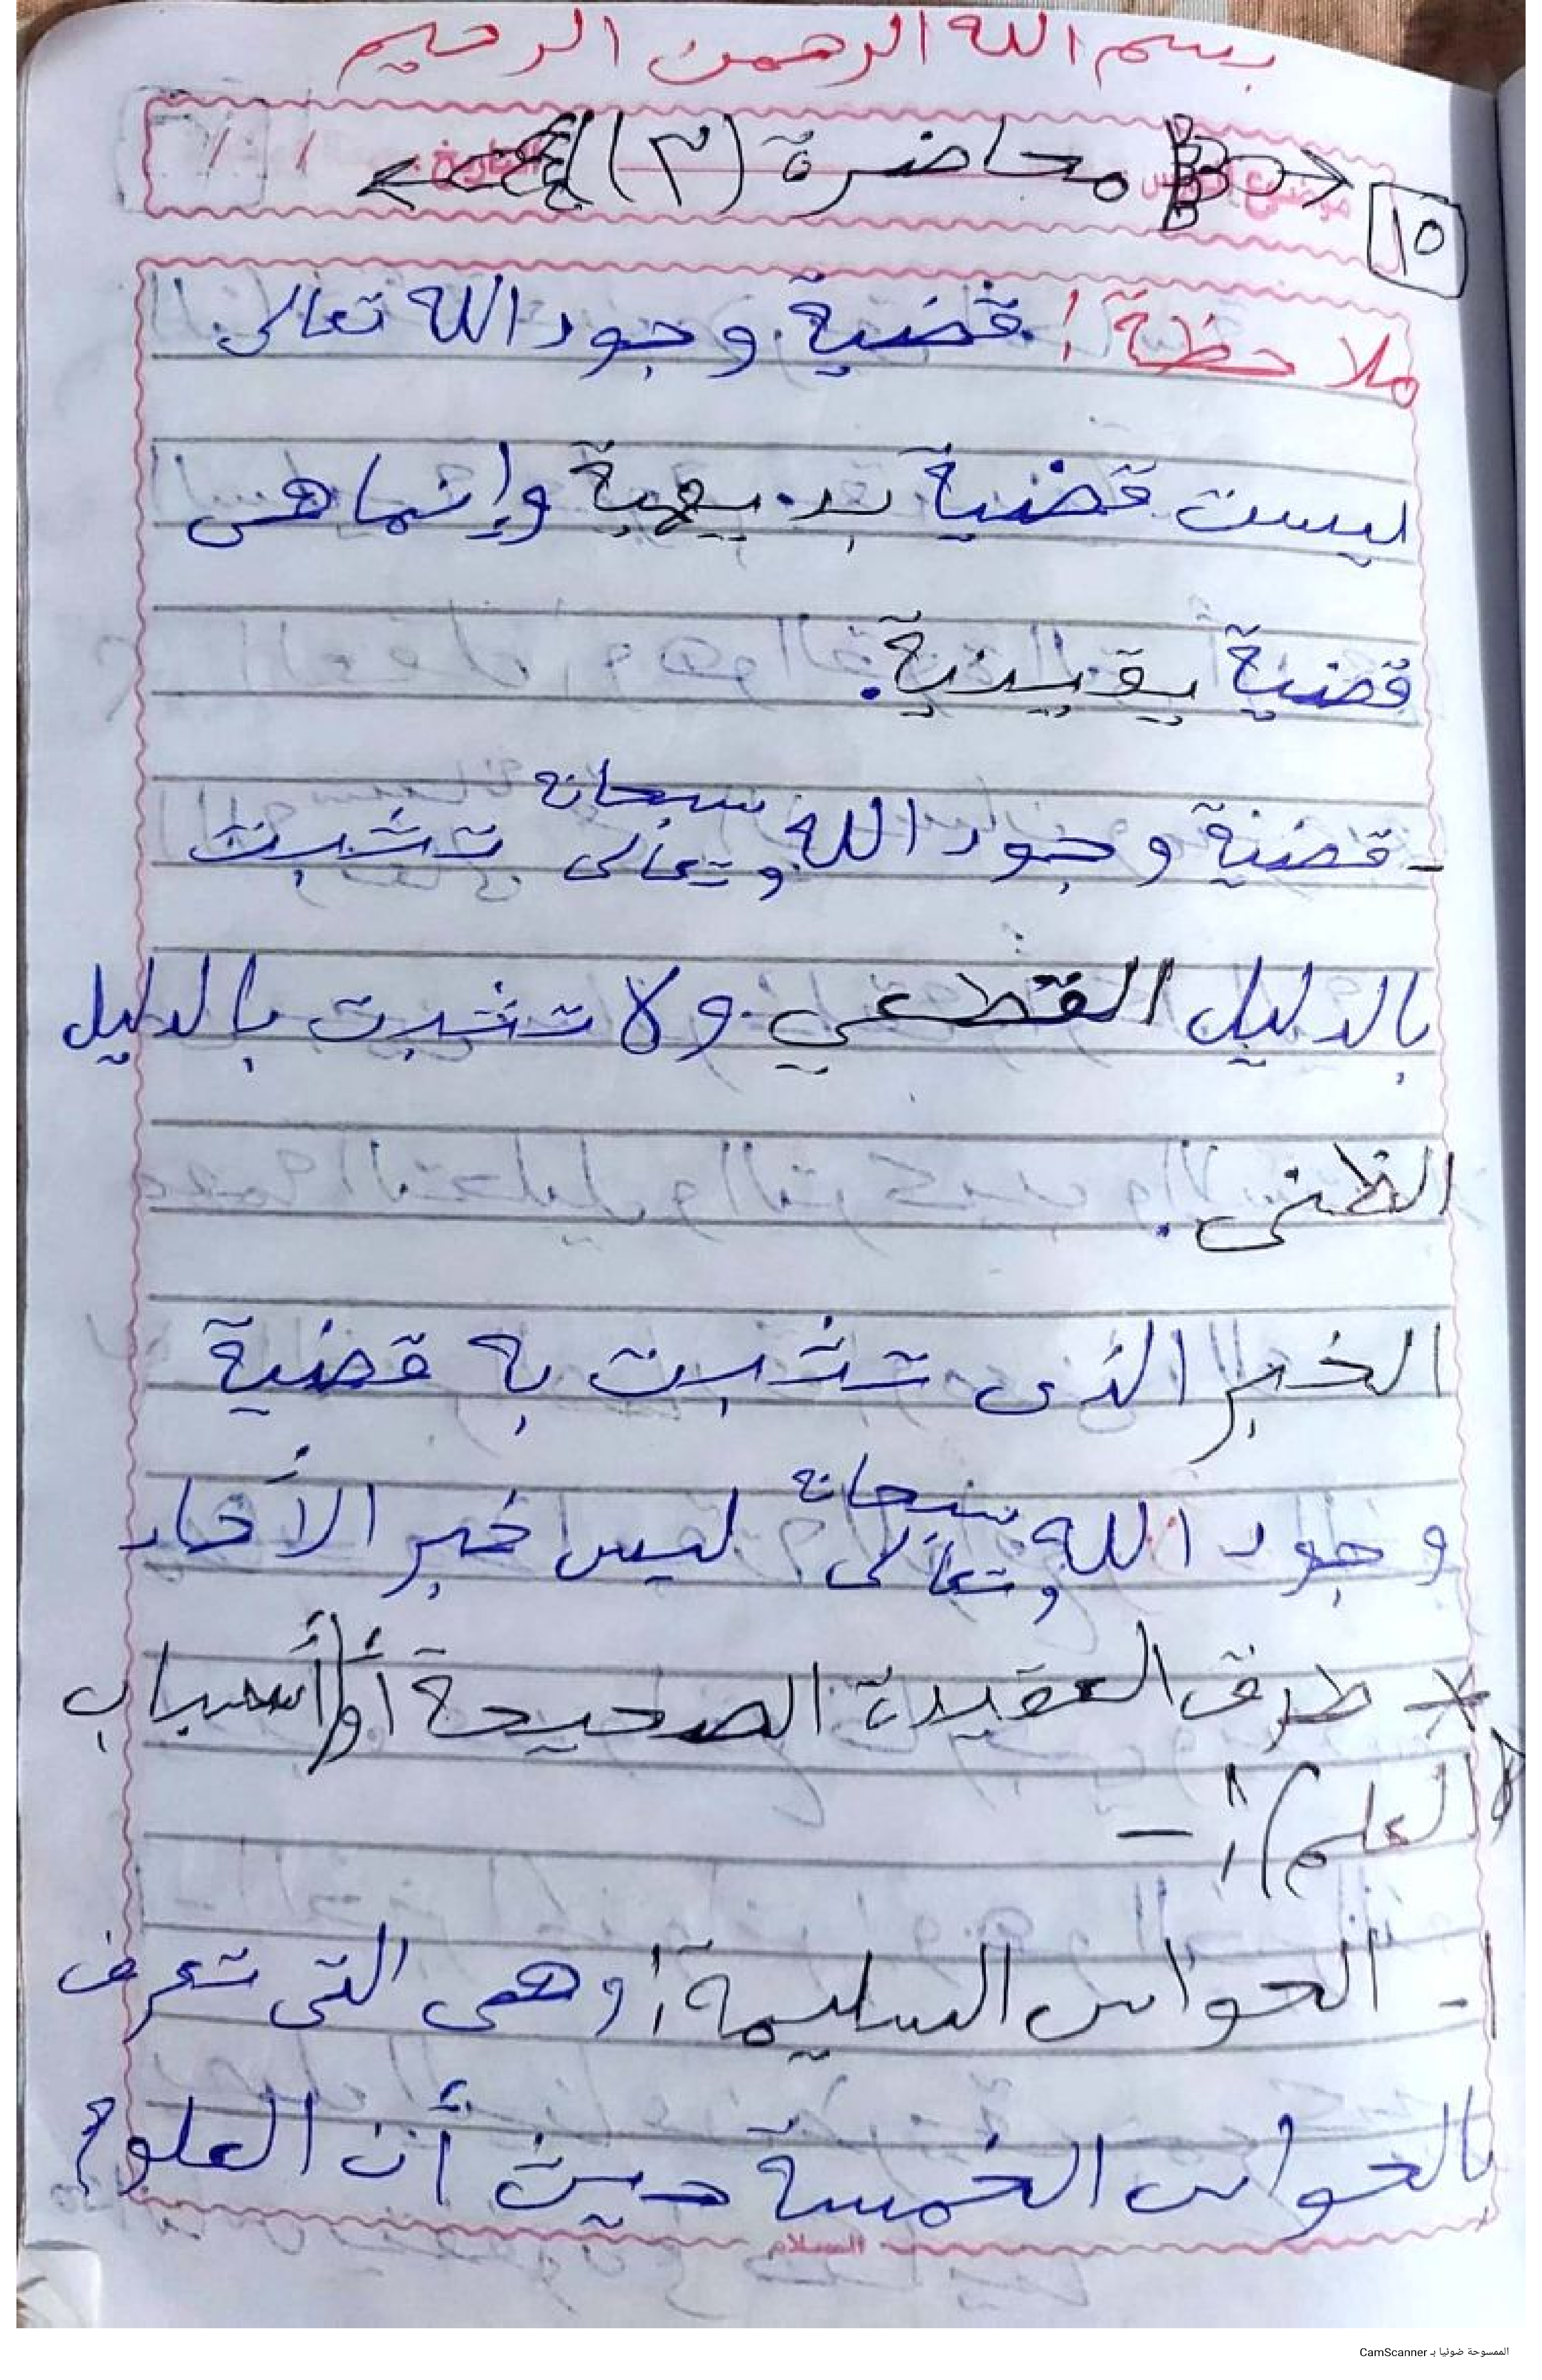 بسم الله الرحمن الرحيم
محاضرة (٣)
١٥
ملاحظة: قضية وجود الله تعالى
ليست قضية بديهية وإنما هى
قضية يقينية.
- قضية وجود الله سبحانه وتعالى تثبت
بالدليل القطعي ولا تثبت بالدليل
الظنى.
الخبر الذى تثبت به قضية
وجود الله سبحانه وتعالى ليس خبر الآحاد
* طرق العقيدة الصحيحة أو (أسباب
العلم) :-
١- الحواس السليمة: وهى التى تعرف
بالحواس الخمسة حيث أن العلوم
الممسوحة ضوئيا بـ CamScanner